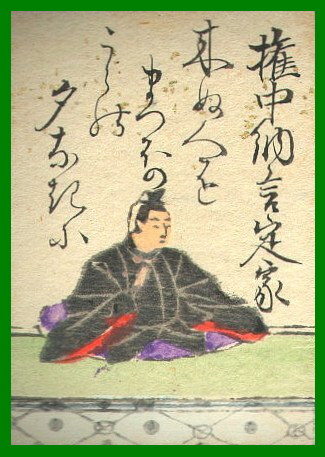 権中納言定家
来ぬ人を
まつほの
うらの
夕なきに